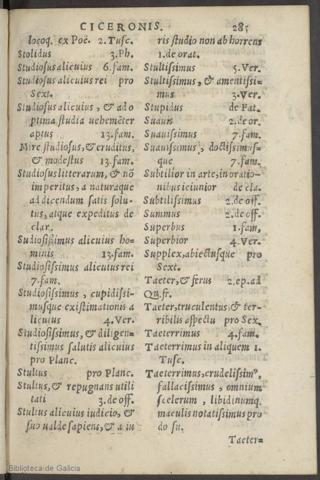 CICERONIS. 285
iocoq. ex Poë. 2. Tusc.
Stolidus 3. Ph.
Studiosus alicuius 6. fam.
Studiosus alicuius rei pro
Sext.
Studiosus alicuius, & ad o
ptima studia uehemēter
aptus 13. fam.
Mire studiosus, & eruditus,
& modestus 13. fam.
Studiosus litterarum, & nō
imperitus, a naturaque
ad dicendum satis solu-
tus, atque expeditus de
clar.
Studiosissimus alicuius ho-
minis 13. fam.
Studiosissimus alicuius rei
7. fam.
Studiosissimus, cupidissi-
musque existimationis a
licuius 4. Ver.
Studiosissimus, & diligen-
tissimus salutis alicuius
pro Planc.
Stultus pro Planc.
Stultus, & repugnans utili
tati 3. de off.
Stultus alicuius iudicio, &
suo ualde sapiens, & a iu
ris studio non abhorrens
1. de orat.
Stultissimus 5. Ver.
Stultissimus, & amentissi-
mus 3. Ver.
Stupidus de Fat.
Suauis 2. de or.
Suauissimus 7. fam.
Suauissimus, doctissimus-
que 7. fam.
Subtilior in arte, in oratio-
nibus ieiunior de cla.
Subtilissimus 2. de off.
Summus 2. de off.
Superbus 1. fam.
Superbior 4. Ver.
Supplex, abiectusque pro
Sext.
Taeter, & ferus 2. ep. ad
Q. fr.
Taeter, truculentus, & ter-
ribilis aspectu pro Sex.
Taeterrimus 4. fam.
Taeterrimus in aliquem 1.
Tusc.
Taeterrimus, crudelissim⁹,
fallacissimus, omnium
scelerum, libidinumq.
maculis notatissimus pro
do su.
Taeter=
Biblioteca de Galicia